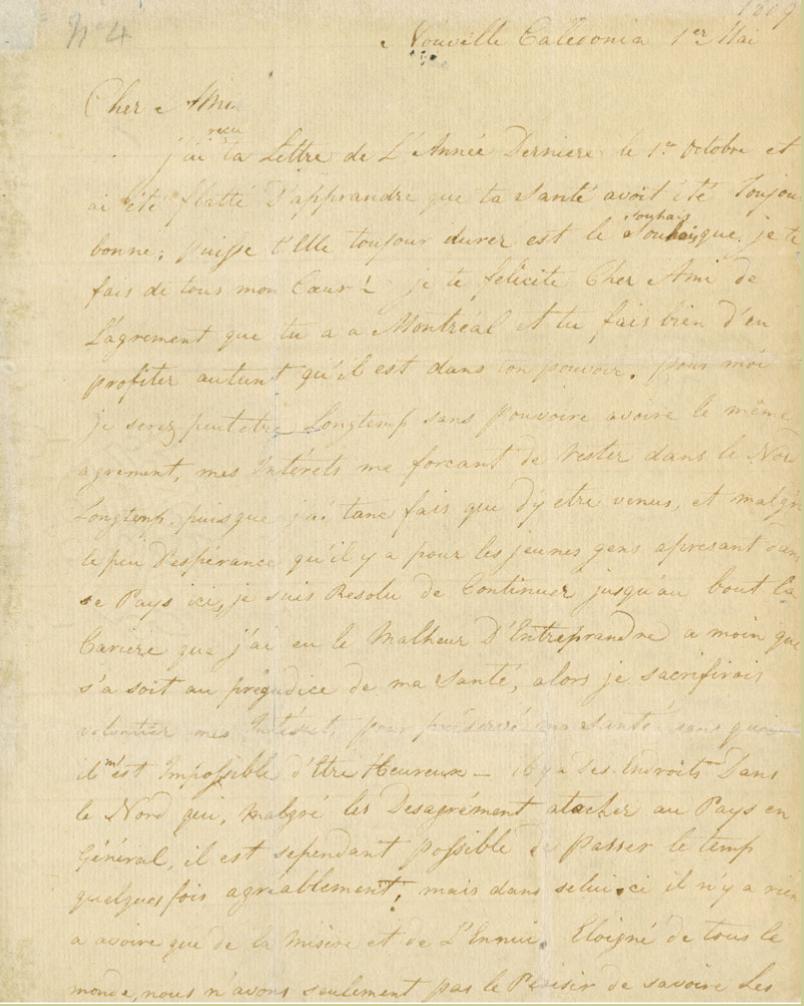 N° 4
1809
Nouvelle Caledonia 1er Mai
Cher Ami
reçu
j'ai ta Lettre de L'Année Derniere le 1er Octobre et
ai été flatté D'apprandre que ta Santé avoit été Toujou
souhais
bonne; puisse t'Elle toujour durer est le Souhais que je te
fais de tous mon Cœur! je te felicite Cher Ami de
L'agrement que tu a a Montréal et tu fais bien d'en
profiter autant qu'il est dans ton pouvoir. pour moi
je serez peutetre Longtemp sans pouvoire avoire le même
agrement, mes Intérêts me forcant de rester dans le Nor
Longtemp, puisque j'ai tanc fais que d'y etre venus, et malgr
le peu D'espérance qu'il y a pour les jeunes gens apresant dans
se Pays ici, je suis Resolu de Continuer jusqu'au bout la
Cariere que j'ai eu le Malheur D'Entreprandre a moin que
s'a soit au prégudice de ma Santé, alors je sacrifirois
volontier mes Intérêt, pour préservé ma Santé sans quoi
il m'est Impossible d'être Heureux — il y a des Endroits Dans
le Nord qui, malgré les Desagrément atacher au Pays en
Général, il est sependant possible de Passer le temp
quelques fois agréablement; mais dans selui ci il n'y a rien
a avoire que de la misère et de L'Ennui. Eloigné de tous le
monde, nous n'avons seulement pas le Plaisir de savoire des